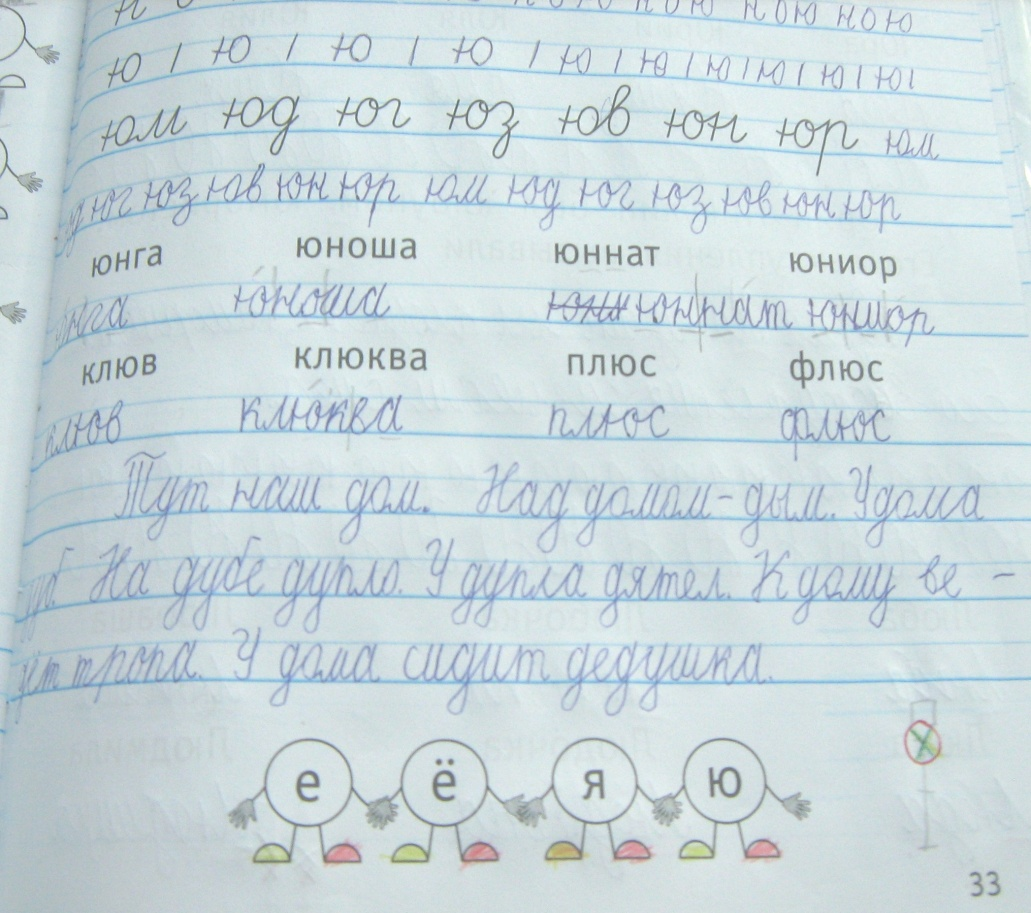 ною ною ною
ю ı ю ı ю ı ю ı ю ı ю ı ю ı ю ı ю ı ю ı
юм юд юг юз юв юн юр юм
юд юг юз юв юн юр юм юд юг юз юв юн юр
юнга юноша юннат юниор
юнга юноша юннат юниор
клюв клюква плюс флюс
клюв клюква плюс флюс
Тут наш дом. Над домом - дым. У дома
дуб. На дубе дупло. У дупла дятел. К дому ве -
дёт тропа. У дома сидит дедушка.
е ё я ю
33